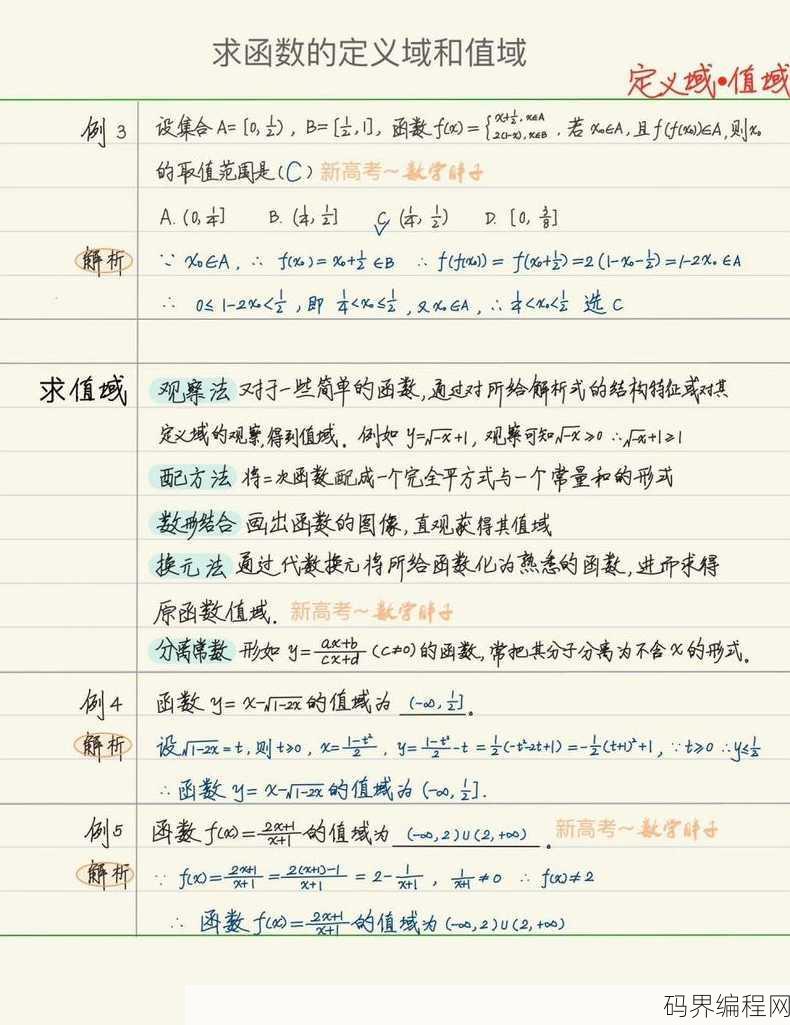 求函数的定义域和值域
定义域•值域
例3 设集合A=[0,½), B=[½,1], 函数f(x)={x+½, x∈A 2(1-x), x∈B . 若x₀∈A,且f(f(x₀))∈A,则x₀
的取值范围是(C) 新高考~数学胖子
A. (0,¼] B. (¼,½] C. (¼,½) D. [0,⅜]
解析 ∵ x₀∈A, ∴ f(x₀)=x₀+½∈B ∴ f(f(x₀))=f(x₀+½)=2(1-x₀-½)=1-2x₀∈A
∴ 0≤1-2x₀<½,即 ¼<x₀≤½,又x₀∈A,∴¼<x₀<½ 选C
求值域 观察法 对于一些简单的函数,通过对所给解析式的结构特征或对其
定义域的观察,得到值域. 例如 y=√-x+1, 观察可知√-x≥0 ∴√-x+1≥1
配方法 将二次函数配成一个完全平方式与一个常量和的形式
数形结合 画出函数的图像,直观获得其值域
换元法 通过代数换元将所给函数化为熟悉的函数,进而求得
原函数值域. 新高考~数学胖子
分离常数 形如 y=(ax+b)/(cx+d) (c≠0)的函数,常把其分子分离为不含x的形式。
例4 函数 y=x-√1-2x 的值域为 (-∞,½].
解析 设√1-2x=t,则t≥0, x=(1-t²)/2 , y=(1-t²)/2-t=½(-t²-2t+1)=-½(t+1)²+1, ∵t≥0 ∴y≤½
∴函数 y=x-√1-2x 的值域为(-∞,½].
例5 函数 f(x)=(2x+1)/(x+1) 的值域为 (-∞,2)∪(2,+∞) 。 新高考~数学胖子
解析 ∵ f(x)=(2x+1)/(x+1)=(2(x+1)-1)/(x+1)=2-1/(x+1) , 1/(x+1)≠0 ∴ f(x)≠2
∴ 函数 f(x)=(2x+1)/(x+1) 的值域为(-∞,2)∪(2,+∞)
码界编程网